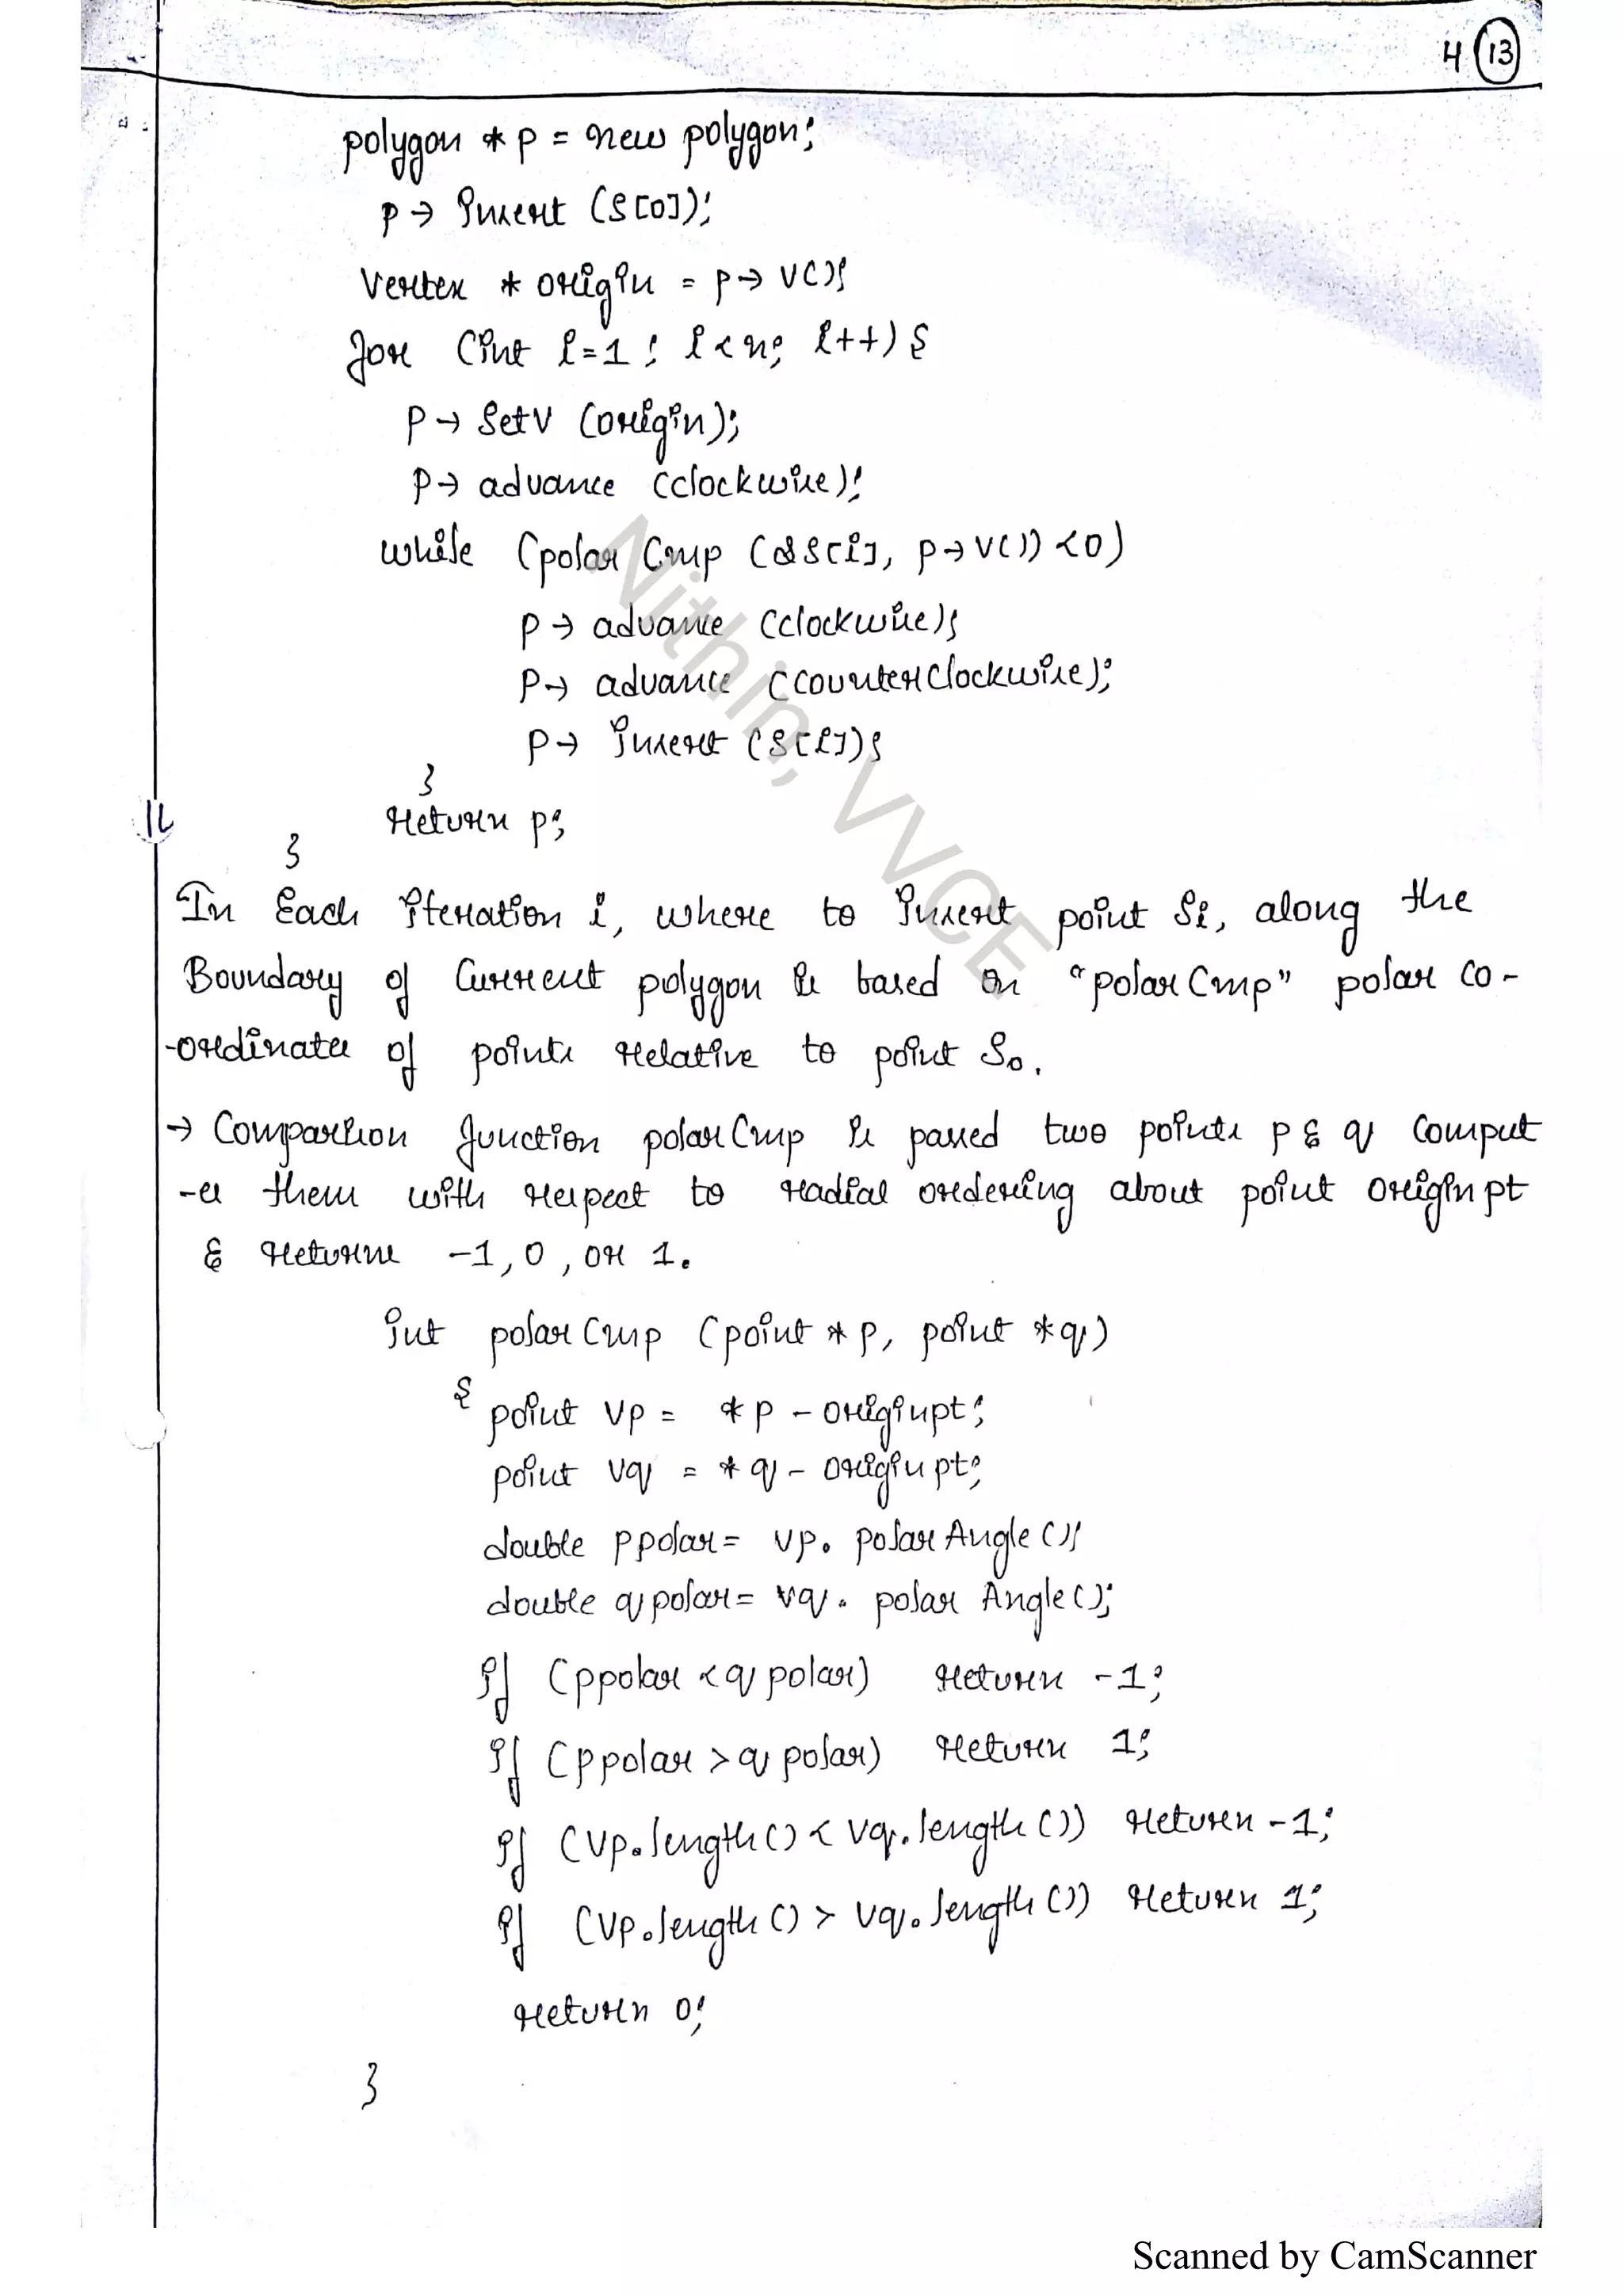 4 (13)
polygon * p = new polygon;
p → insert (s[0]);
Vertex * origin = p → v();
for (int i=1; i<n; i++) {
p → setv (origin);
p → advance (clockwise);
while (polar Cmp (&s[i], p→v()) <0)
p → advance (clockwise);
p → advance (counterclockwise);
p → insert (s[i]);
}
return p;
}
In Each iteration i, where to insert point Si, along the
Boundary of Current polygon is based on "polar Cmp" polar co-
-ordinates of points relative to point So.
→ Comparision function polarCmp is passed two points p & q comput
-es them with respect to radial ordering about point originpt
& returns -1, 0, or 1.
int polar Cmp (point * p, point * q)
{
point vp = * p - originpt;
point vq = * q - originpt;
double ppolar = vp. polar Angle ();
double qpolar = vq. polar Angle();
if (ppolar < q polar) return -1;
if (ppolar > q polar) return 1;
if (vp.length() < vq.length ()) return -1;
if (vp.length () > vq.length ()) return 1;
return 0;
}
Nithin, VVCE
Scanned by CamScanner